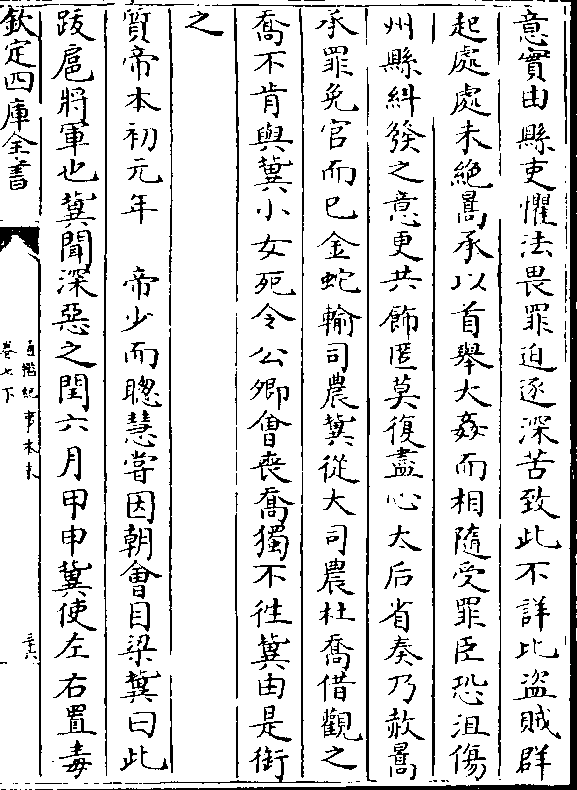 意實由縣吏懼法畏罪迫逐深苦致此不詳比盜賊羣
起處處未絶暠承以首舉大姦而相隨受罪臣恐沮傷
州縣糾發之意更共飾匿莫復盡心太后省奏乃赦暠
承罪免官而已金蛇輸司農冀從大司農杜喬借觀之
喬不肯與冀小女死令公卿會喪喬獨不徃冀由是銜
之
質帝本初元年　帝少而聰慧嘗因朝會目梁冀曰此
跋扈將軍也冀聞深惡之閏六月甲申冀使左右置毒
欽定四庫全書
通鑑紀事本末
卷七下
三六